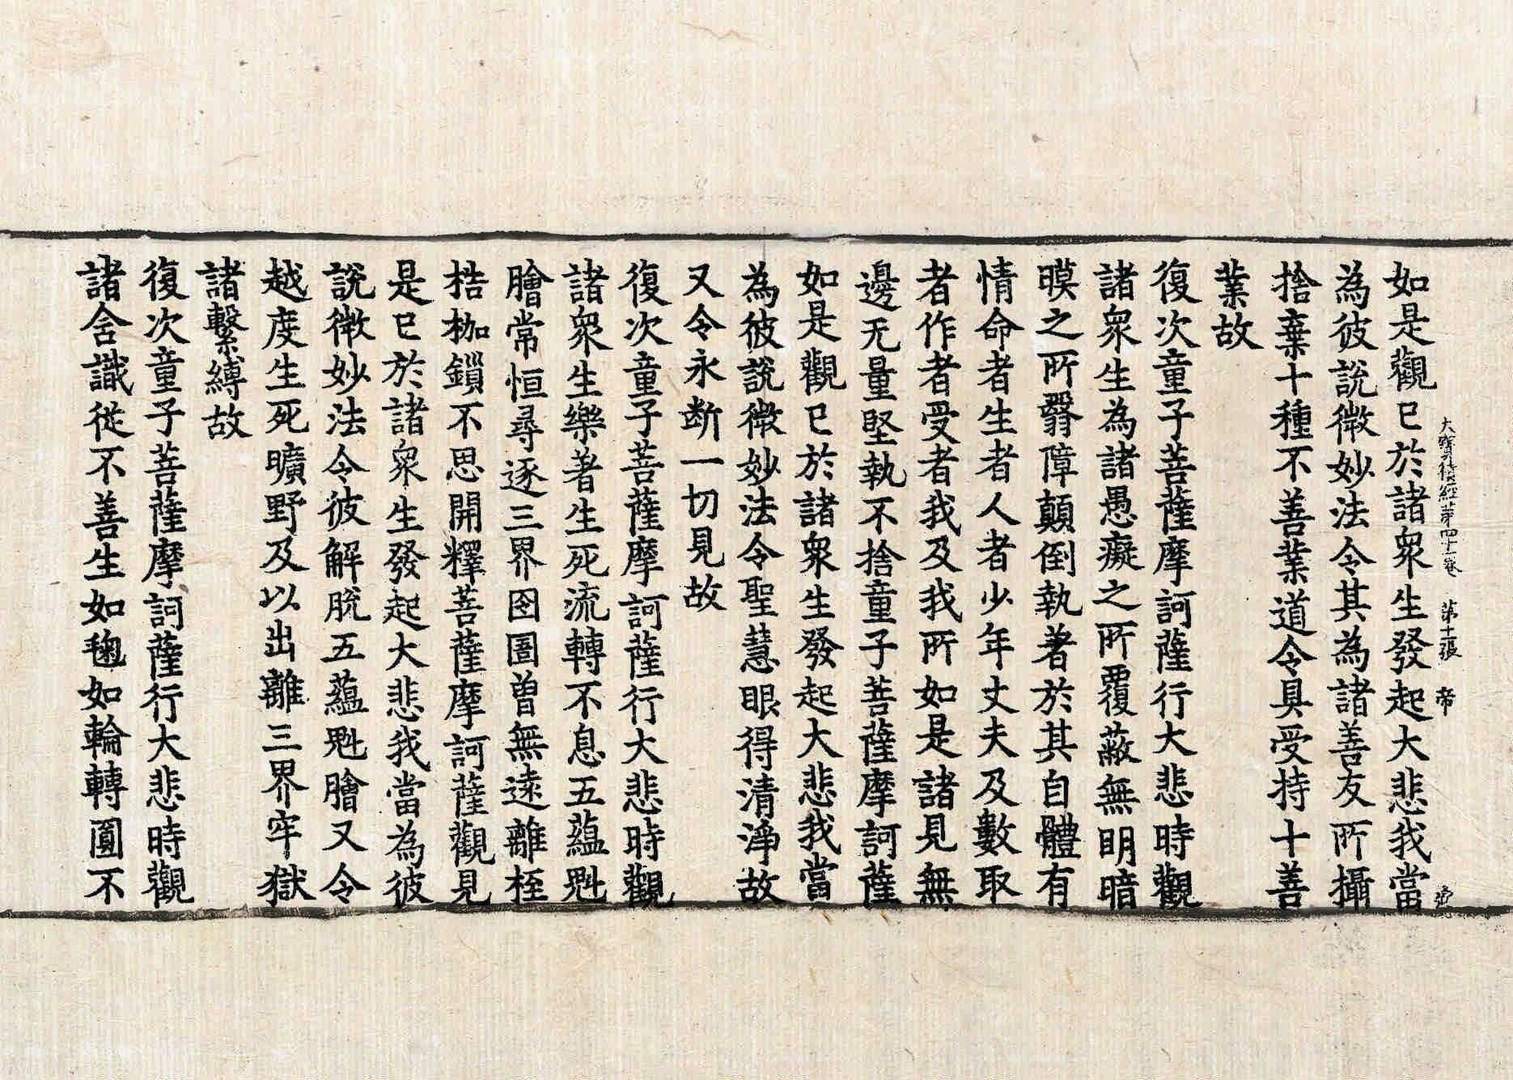 大寶積經第四十一卷 第十張 帝
如是觀已於諸衆生發起大悲我當
為彼說微妙法令其為諸善友所攝
捨棄十種不善業道令具受持十善
業故
復次童子菩薩摩訶薩行大悲時觀
諸衆生為諸愚癡之所覆蔽無明暗
瞙之所翳障顛倒執著於其自體有
情命者生者人者少年丈夫及數取
者作者受者我及我所如是諸見無
邊无量堅執不捨童子菩薩摩訶薩
如是觀已於諸衆生發起大悲我當
為彼說微妙法令聖慧眼得清淨故
又令永断一切見故
復次童子菩薩摩訶薩行大悲時觀
諸衆生樂著生死流轉不息五蘊魁
膾常恒尋逐三界囹圄曽無遠離桎
梏枷鎖不思開釋菩薩摩訶薩觀見
是已於諸衆生發起大悲我當為彼
說微妙法令彼解脫五蘊魁膾又令
越度生死曠野及以出離三界牢獄
諸繫縛故
復次童子菩薩摩訶薩行大悲時觀
諸含識從不善生如毱如輪轉圓不